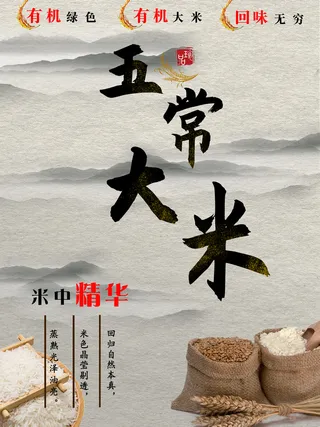 有机绿色
有机大米
回味无穷
五常大米
米中精华
回归自然本真，
米色晶莹剔透，
蒸熟光泽油亮。